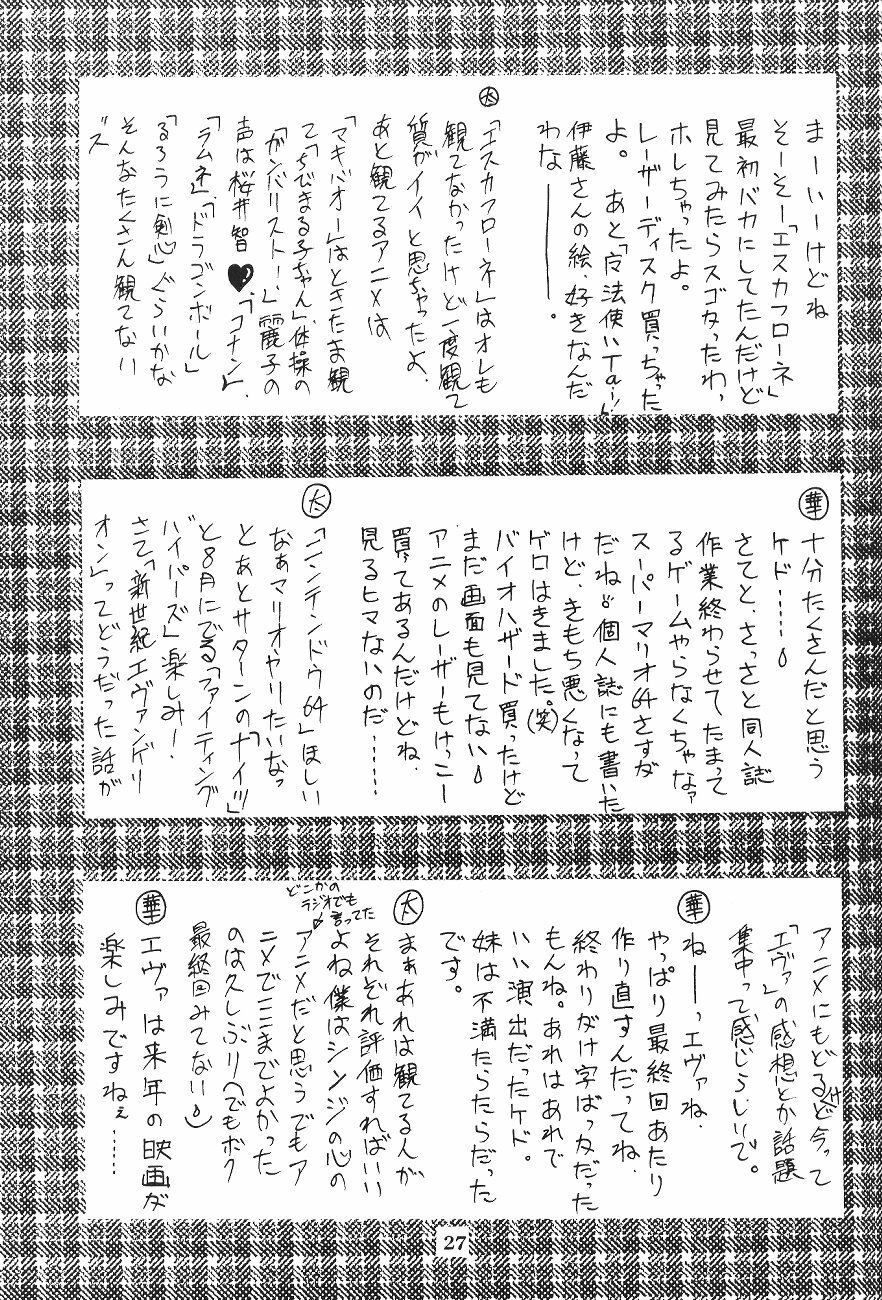 まーいーけどね
そーそー「エスカフローネ」
最初バカにしてたんだけど
見てみたらスゴかったわ,
ホレちゃったよ。
レーザーディスク買っちゃった
よ。あと「魔法使いTai!」
伊藤さんの絵、好きなんだ
わなーーー。
太
「エスカフローネ」はオレも
観てなかったけど一度観て
質がイイと思ちゃったよ、
あと観てるアニメは
「マキバオー」はときたま観
て「ちびまる子ちゃん」、体操の
「ガンバリスト!」麗子の
声は桜井智♥、「コナン」、
「ラムネ」、「ドラゴンボール」
「るろうに剣心」ぐらいかな
そんなたくさん観てない
ス
華
十分たくさんだと思う
ケド……
さてと、さっさと同人誌
作業終わらせて、たまって
るゲームやらなくちゃなァ
スーパーマリオ64さすが
だね。個人誌にも書いた
けど、きもち悪くなって
ゲロはきました。(笑)
バイオハザード買ったけど
まだ画面も見てない
アニメのレーザーもけっこー
買ってあるんだけどね、
見るヒマないのだ……
太
「ニンテンドウ64」ほしい
なぁマリオやりたいなっ
とあとサターンの「ナイツ」
と8月にでる「ファイティング
バイパーズ」楽しみ!
さて「新世紀エヴァンゲリ
オン」ってどうだった話が
アニメにもどるけど今って
「エヴァ」の感想とか話題
集中って感じらしいで。
華
ねーーっエヴァね、
やっぱり最終回あたり
作り直すんだってね、
終わりがけ字ばっかだった
もんね。あれはあれで
いい演出だったケド。
妹は不満たらたらだった
です。
太
まぁあれは観てる人が
それぞれ評価すればいい
よね僕はシンジの心の
どこかの
ラジオでも
言ってた
アニメだと思うでもア
ニメでここまでよかった
のは久しぶりへでもボク
最終回みてない
華
エヴァは来年の映画が
楽しみですねぇ……
27